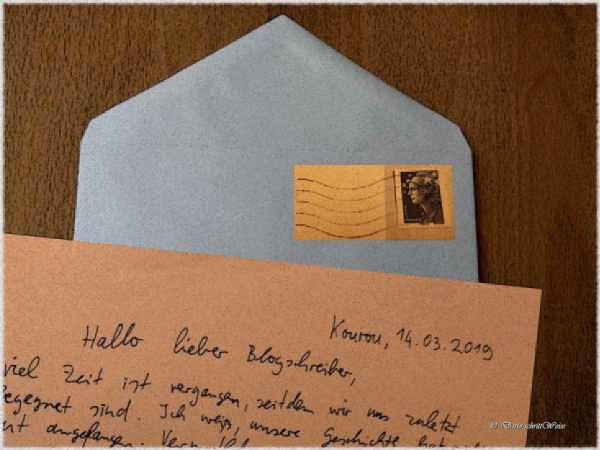 Kourou, 14.03.2019
Hallo lieber Blogschreiber,
viel Zeit ist vergangen, seitdem wir uns zuletzt
begegnet sind. Ich weiss, unsere Geschichte hat
angefangen.
©